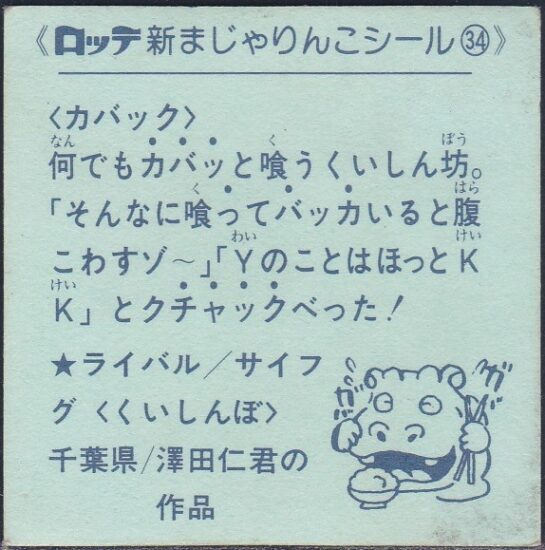 《ロッテ新まじゃりんこシール㉞》
〈カバック〉
何でもカバッと喰うくいしん坊。
「そんなに喰ってバッカいると腹
こわすゾ〜」「YのことはほっとК
K」とクチャックべった!
★ライバル/サイフ
グ〈くいしんぼ〉
千葉県/澤田仁君の
作品
ガバ
ガバ